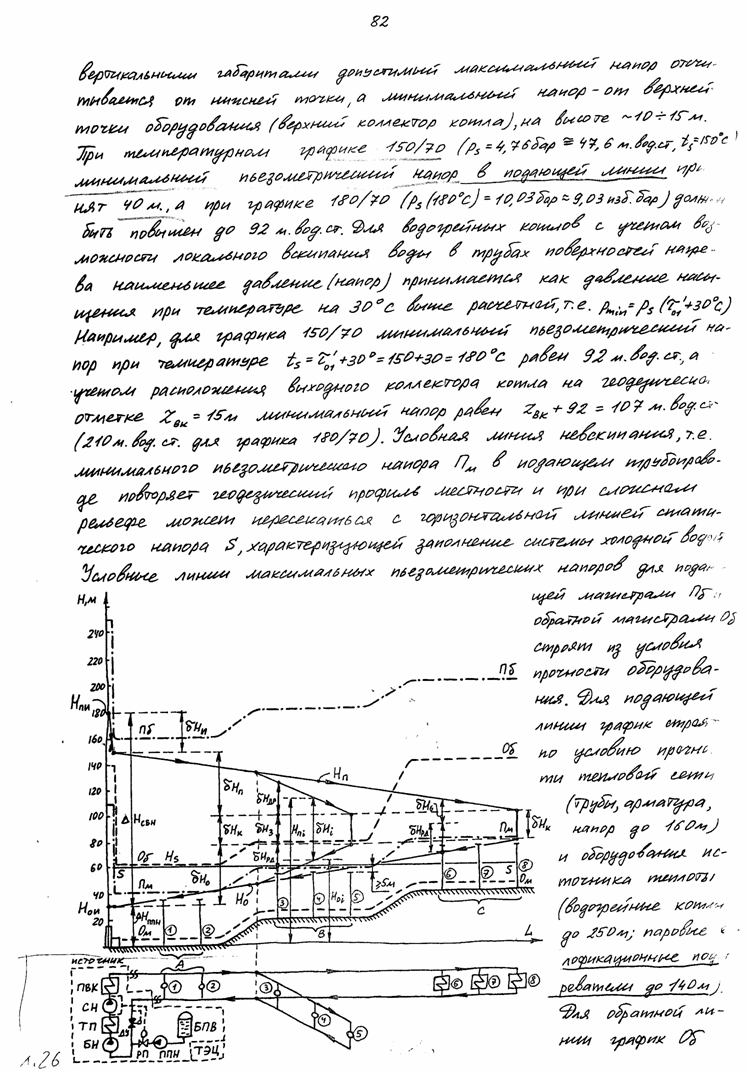 82
вертикальными габаритами допустимый максимальный напор отсчи-
тывается от нижней точки, а минимальный напор - от верхней
точки оборудования (верхний коллектор котла), на высоте ~10÷15 м.
При температурном графике 150/70 (ps=4,76бар ≅ 47,6 м.вод.ст, ts=150°C
минимальный пьезометрический напор в подающей линии при
нят 40 м., а при графике 180/70 (ps(180°C)=10,03бар ≈ 9,03 изб. бар) долж
быть повышен до 92 м.вод.ст. Для водогрейных котлов с учетом воз-
можности локального вскипания воды в трубах поверхностей нагре-
ва наименьшее давление (напор) принимается как давление насы-
щения при температуре на 30°С выше расчетной, т.е. Pmin = Ps (τ'01+30°C)
Например, для графика 150/70 минимальный пьезометрический на-
пор при температуре ts = τ'01+30°=150+30=180°C равен 92 м.вод.ст., а
учетом расположения выходного коллектора котла на геодезическо
отметке Zвк = 15м минимальный напор равен Zвк + 92 = 107 м.вод.ст
(210 м. вод. ст. для графика 180/70). Условная линия невскипания, т.е.
минимального пьезометрического напора Пм в подающем трубопрово-
де повторяет геодезический профиль местности и при сложном
рельефе может пересекаться с горизонтальной линией стати-
ческого напора S, характеризующей заполнение системы холодной водой
Условные линии максимальных пьезометрических напоров для подаю-
щей магистрали Пб и
обратной магистрали Об
строят из условия
прочности оборудова-
ния. Для подающей
линии график строят
по условию прочнос
ти тепловой сети
(трубы, арматура,
напор до 160м)
и оборудование ис-
точника теплоты
(водогрейные котлы
до 250м; паровые
лофикационные под
реватели до 140м).
Для обратной ли-
нии график Об
H, м
240
220
200
180
160
140
120
100
80
60
40
20
Hпи
Пб
δHи
Пб
Об
Hп
δHп
δHдр
δHб
ΔHсвн
Hпi
δHi
δHк
δHз
δHрд
Пм
δHк
Об
Hs
S
δHо
δHрд
S
Пм
Hо
Hоi
≥5м
Ом
Hои
ΔHппн
Ом
1
2
3
4
5
6
7
8
A
B
C
L
источник
ПВК
СН
ТП
БН
ДУ
РП
ППН
БПВ
ТЭЦ
1
2
3
4
5
6
7
8
л.26